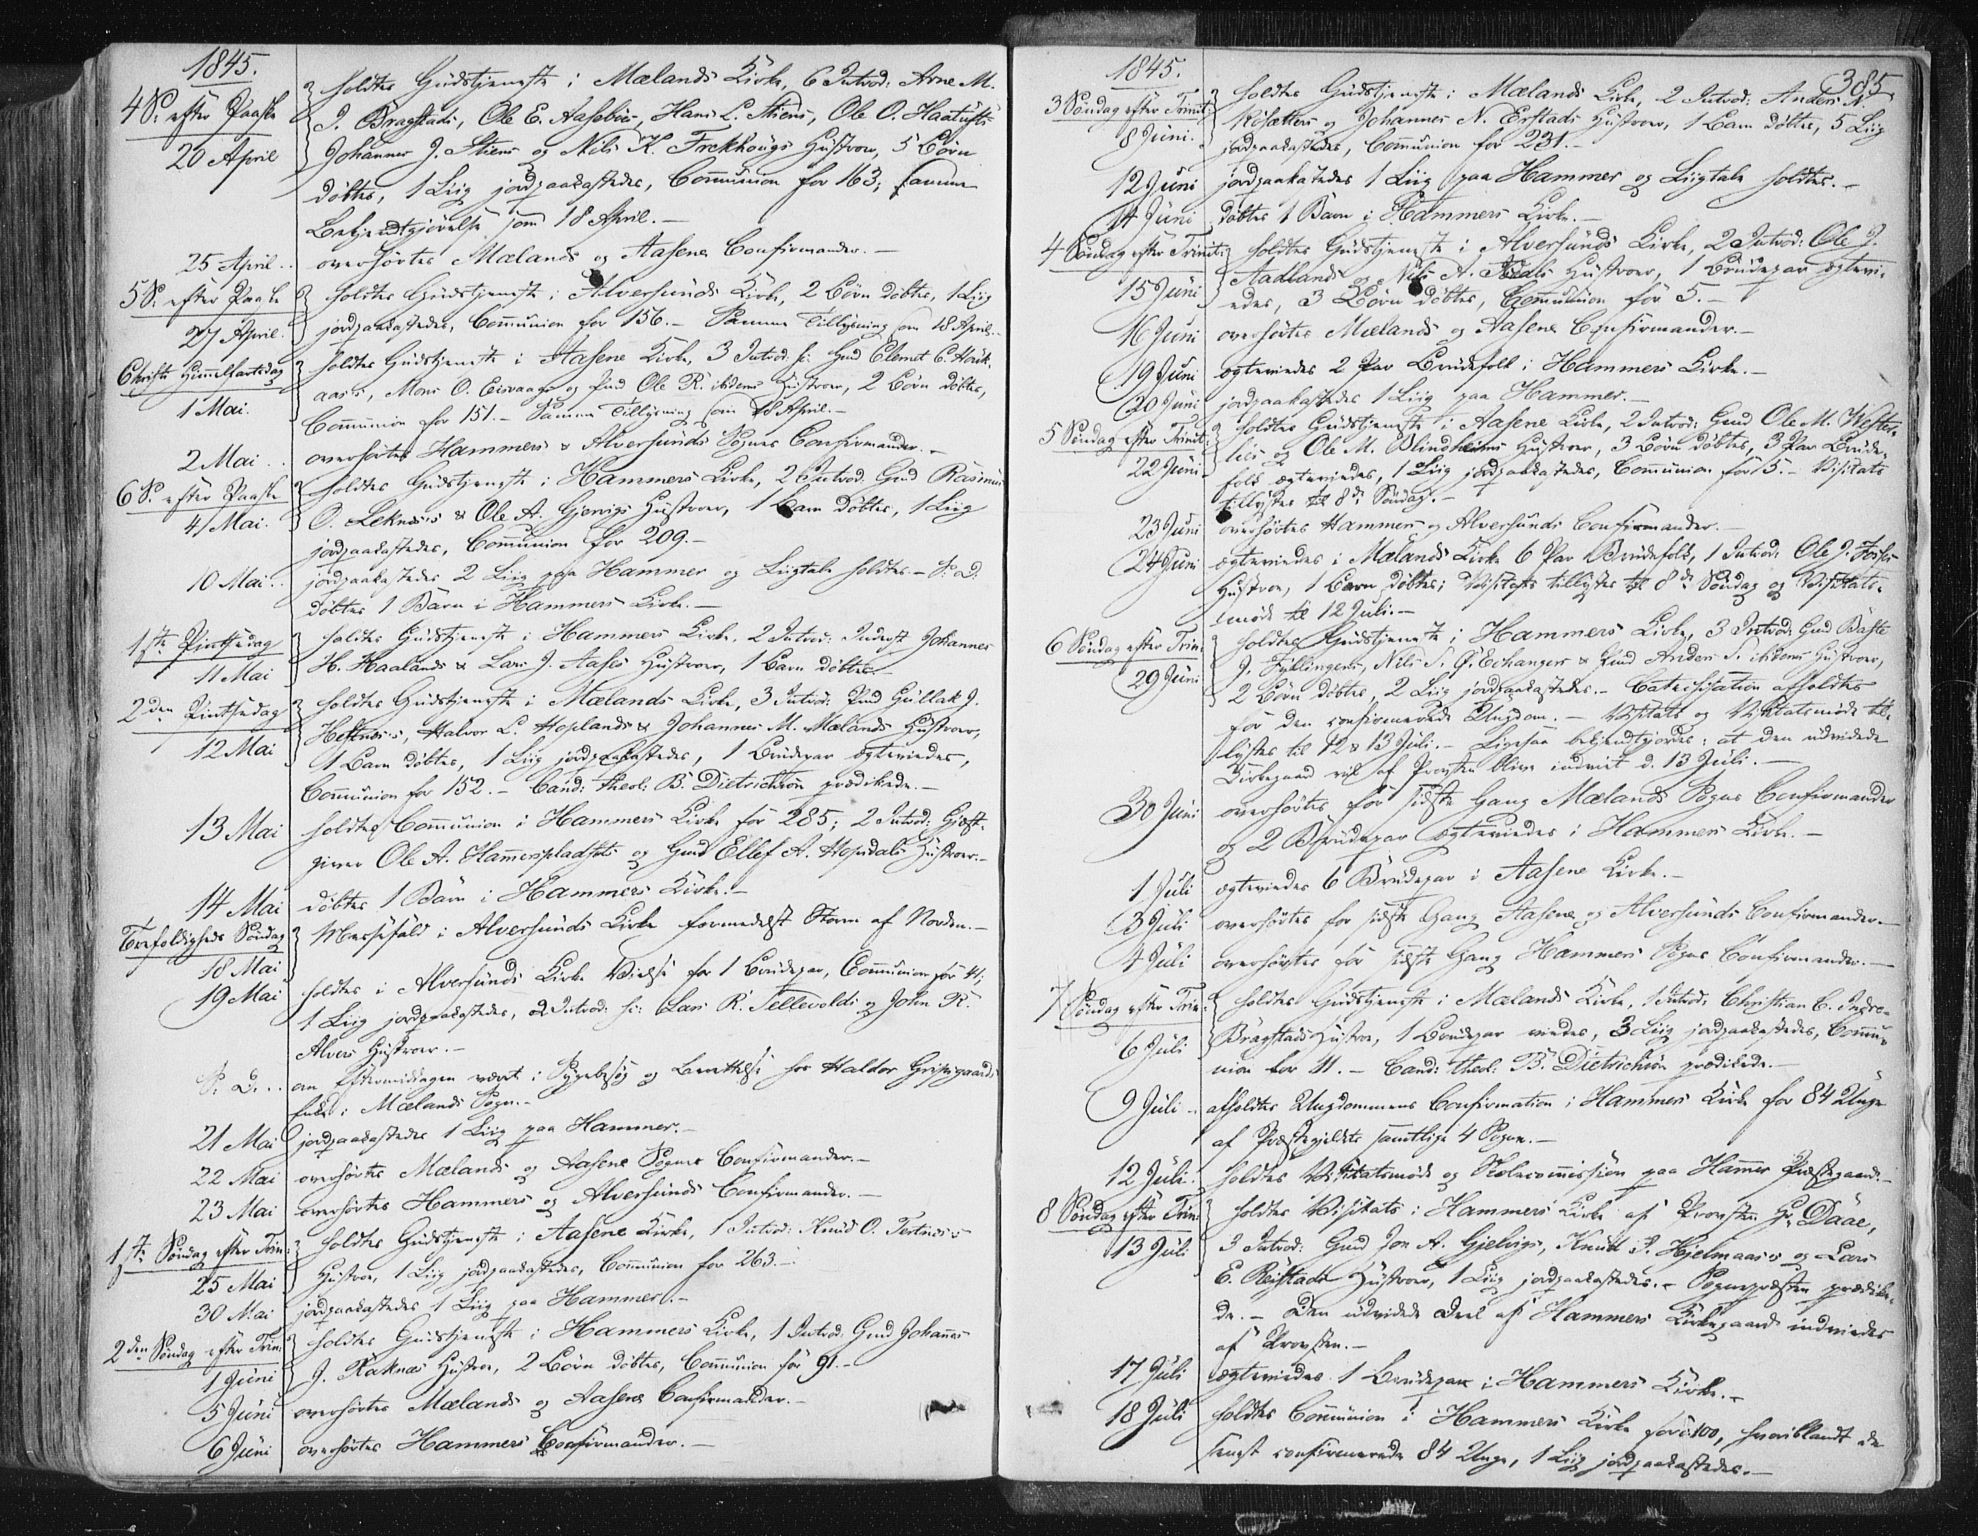 1845.
4 S. efter Paaske holdtes Gudstjeneste i Mælands Kirke, 6 Introd: Arne M.
20 April J. Bragstads, Ole E. Aasebøes, Hans L. Stiens, Ole O. Haatufts
Johannes J. Stiens og Nils K. Frekhougs Hustroer, 5 Børn
døbtes, 1 Liig jordpaakastedes, Communion for 163; samme
Bekjendtgjørelse som 18 April.—
25 April.. overhørtes Mælands og Aasene Confirmander.—
5 S. efter Paaske holdtes Gudstjeneste i Alversunds Kirke, 2 Børn døbtes, 1 Liig
27 April. jordpaakastedes, Communion for 156.— Samme Tillysning som 18 April.—
Christi Himmelfartsdag holdtes Gudstjeneste i Aasene Kirke, 3 Introd: sc: Gmd Clemet C.
1 Mai. Mons O. Eisvaags og Pmd Ole R. ibidems Hustroer, 2 Børn døbtes,
Communion for 151.— Samme Tillysning som 18 April.—
2 Mai.. overhørtes Hammers & Alversunds Sognes Confirmander.—
6 S. efter Paaske holdtes Gudstjeneste i Hammers Kirke, 2 Introd: Gmd Rasmus
4 Mai. O. Leknes's & Ole A. Gjervigs Hustroer, 1 Barn døbtes, 1 Liig
jordpaakastedes, Communion for 209.—
10 Mai.. jordpaakastedes 2 Liig paa Hammer og Liigtale holdtes.— S. D.
døbtes 1 Barn i Hammers Kirke.—
1ste Pintsedag holdtes Gudstjeneste i Hammers Kirke, 2 Introd: Inderst Johannes
11 Mai H. Haalands & Lars J. Aases Hustroer, 1 Barn døbtes.—
2den Pintsedag holdtes Gudstjeneste i Mælands Kirke, 3 Introd: Pmd Gullak J.
12 Mai Heltnes's, Halvor L. Hoplands & Johannes M. Mælands Hustroer,
1 Barn døbtes, 1 Liig jordpaakastedes, 1 Brudepar ægteviedes,
Communion for 152.— Cand: theol: B. Dietrichson prædikede.—
13 Mai holdtes Communion i Hammers Kirke for 285; 2 Introd: Gjæst-
giver Ole A. Hamerspladsets og Gmd Ellef A. Hopsdals Hustroer.—
14 Mai døbtes 1 Barn i Hammers Kirke.—
Trefoldigheds Søndag 18 Mai Messefald i Alversunds Kirke formedelst Storm af Norden.—
19 Mai holdtes i Alversunds Kirke Vielse for 1 Brudepar, Communion for 41;
1 Liig jordpaakastedes, 2 Introd: sc: Lars R. Tellevolds og John R.
Alvers Hustroer.—
S. D... om Eftermiddagen været i Sygebesøg og Berettelse hos Haldor Gripsgaards
Enke i Mælands Sogn.—
21 Mai jordpaakastedes 1 Liig paa Hammer.—
22 Mai overhørtes Mælands og Aasene Sognes Confirmander.—
23 Mai overhørtes Hammers og Alversunds Confirmander.—
1ste Søndag efter Trin: holdtes Gudstjeneste i Aasene Kirke, 1 Introd: Knud O. Tertnes's
25 Mai Hustroe, 1 Liig jordpaakastedes, Communion for 263.—
30 Mai jordpaakastedes 1 Liig paa Hammer.—
2den Søndag efter Trin: holdtes Gudstjeneste i Hammers Kirke, 1 Introd: Gmd Johannes
1 Juni J. Raknæs Hustroe, 2 Børn døbtes, Communion for 91.—
5 Juni overhørtes Mælands og Aasene Confirmander.—
6 Juni overhørtes Hammers Confirmander.—
1845. 385.
3 Søndag efter Trinit: holdtes Gudstjeneste i Mælands Kirke, 2 Introd: Anders N.
8 Juni. Risætters og Johannes N. Erstads Hustroer, 1 Barn døbtes, 5 Liig
jordpaakastedes, Communion for 231.—
12 Juni jordpaakastedes 1 Liig paa Hammer og Liigtale holdtes.—
14 Juni døbtes 1 Barn i Hammers Kirke.—
4 Søndag efter Trinit: holdtes Gudstjeneste i Alversunds Kirke, 2 Introd: Ole J.
15 Juni Aadlands og Nils A. Hustroer, 1 Brudepar ægtevi-
edes, 3 Børn døbtes, Communion for 5.—
16 Juni overhørtes Mælands og Aasene Confirmander.—
19 Juni ægteviedes 2 Par Brudefolk i Hammers Kirke.—
20 Juni jordpaakastedes 1 Liig paa Hammer.—
5 Søndag efter Trinit: holdtes Gudstjeneste i Aasene Kirke, 2 Introd: Gmd Ole M. Wester-
22 Juni lies og Ole M. Blindheims Hustroer, 3 Børn døbtes, 3 Par Brude-
folk ægteviedes, 1 Liig jordpaakastedes, Communion for 5.— Visitats
tillystes til 8de Søndag.—
23 Juni overhørtes Hammers og Alversunds Confirmander.—
24 Juni ægteviedes i Mælands Kirke 6 Par Brudefolk, 1 Introd: Ole J.
Hustroe, 1 Barn døbtes; Visitats tillystes til 8de Søndag og Visitats-
møde til 12 Juli.—
6 Søndag efter Trin: holdtes Gudstjeneste i Hammers Kirke, 3 Introd: Gmd Baste
29 Juni J. Fyllingens, Nils S. Ø. Echangers & Pmd Anders S. ibidems Hustroer,
2 Børn døbtes, 2 Liig jordpaakastedes.— Catechisation afholdtes
for den confirmerede Ungdom.— Visitats og Visitatsmøde til-
lystes til 12 & 13 Juli.— Ligesaa bekjendtgjordes: at den udvidede
Kirkegaard vil af Provsten blive indviet d. 13 Juli.—
30 Juni overhørtes for sidste Gang Mælands Sogns Confirmander
og 2 Brudepar ægteviedes i Hammers Kirke.—
1 Juli ægteviedes 6 Brudepar i Aasene Kirke.—
3 Juli overhørtes for sidste Gang Aasene og Alversunds Confirmander.—
4 Juli overhørtes for sidste Gang Hammers Sogns Confirmander.—
7 Søndag efter Trin: holdtes Gudstjeneste i Mælands Kirke, 1 Introd: Christian C. Indre-
6 Juli Bragstads Hustroe, 1 Brudepar viedes, 3 Liig jordpaakastedes, Commu-
nion for 11.— Cand: theol: B. Dietrichson prædikede.—
9 Juli.. afholdtes Ungdommens Confirmation i Hammers Kirke for 84 Unge
af Præstegjeldets samtlige 4 Sogne.—
12 Juli. holdtes Visitatsmøde og Skolecommission paa Hammer Præstegaard.—
8 Søndag efter Trin: holdtes Visitats i Hammers Kirke af Provsten Hr. Daae,
13 Juli 3 Introd: Gmd Jon A. Gjelvigs, Knud P. Hjelmaas's og Lars
E. Reistads Hustroer, 1 Liig jordpaakastedes.— Sognepræsten prædike-
de.— Den udvidede Deel af Hammers Kirkegaard indviedes
af Provsten.—
17 Juli ægteviedes 1 Brudepar i Hammers Kirke.—
18 Juli holdtes Communion i Hammers Kirke for 100, hvoriblandt de
sengst confirmerede 84 Unge, 1 Liig jordpaakastedes.—